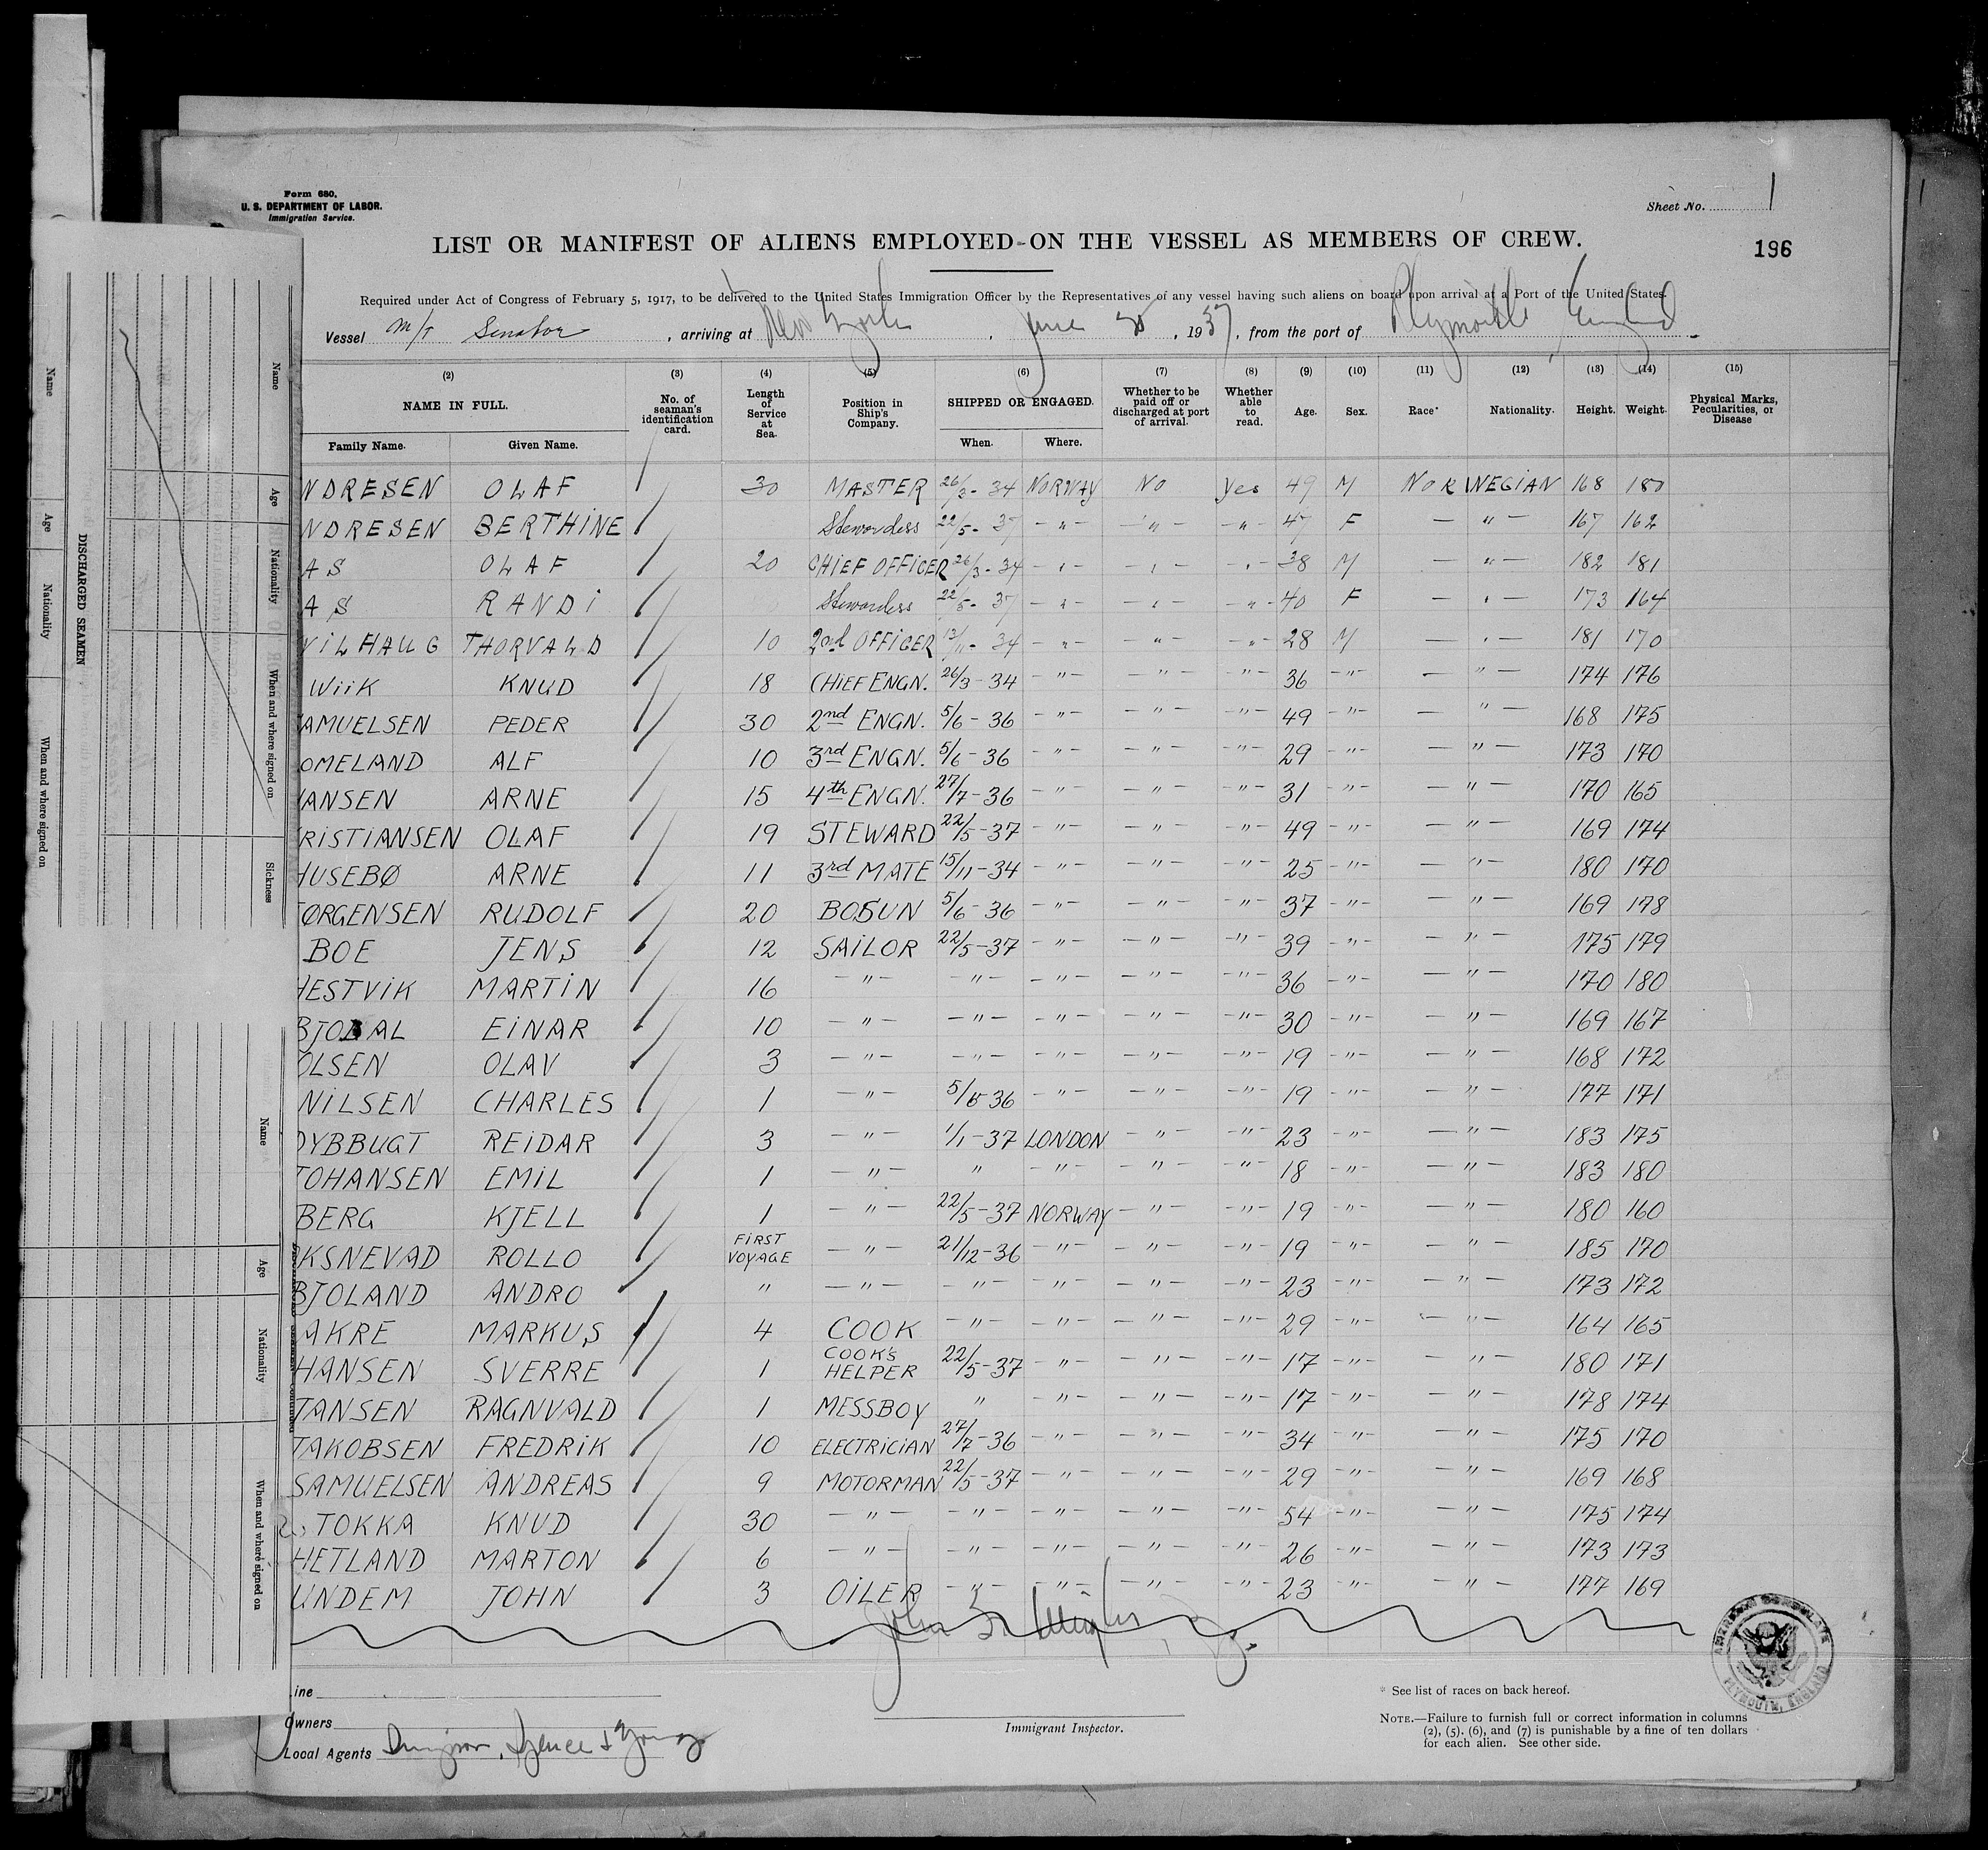 Form 680.
U. S. DEPARTMENT OF LABOR.
Immigration Service.
Sheet No. 1
LIST OR MANIFEST OF ALIENS EMPLOYED ON THE VESSEL AS MEMBERS OF CREW.
196
Required under Act of Congress of February 5, 1917, to be delivered to the United States Immigration Officer by the Representatives of any vessel having such aliens on board upon arrival at a Port of the United States.
Vessel M/T Senator, arriving at New York, June, 1937, from the port of Plymouth, England
(2) (3) (4) (5) (6) (7) (8) (9) (10) (11) (12) (13) (14) (15)
NAME IN FULL. Family Name. Given Name. No. of seaman's identification card. Length of Service at Sea. Position in Ship's Company. SHIPPED OR ENGAGED. When. Where. Whether to be paid off or discharged at port of arrival. Whether able to read. Age. Sex. Race* Nationality. Height. Weight. Physical Marks, Pecularities, or Disease
NDRESEN OLAF 30 MASTER 26/3-34 NORWAY No Yes 49 M NORWEGIAN 168 180
NDRESEN BERTHINE Stewardess 22/5-37 -"- -"- -"- 47 F -"- 167 162
AS OLAF 20 CHIEF OFFICER 26/3-34 -"- -"- -"- 38 M -"- 182 181
AS RANDI Stewardess 22/5-37 -"- -"- -"- 40 F -"- 173 164
VILHAUG THORVALD 10 2nd OFFICER 13/11-34 -"- -"- " 28 M -"- 181 170
WIIK KNUD 18 CHIEF ENGN. 26/3-34 -"- -"- -"- 36 -"- -"- 174 176
AMUELSEN PEDER 30 2nd ENGN. 5/6-36 -"- -"- -"- 49 -"- -"- 168 175
OMELAND ALF 10 3rd ENGN. 5/6-36 -"- -"- -"- 29 -"- -"- 173 170
HANSEN ARNE 15 4th ENGN. 27/7-36 -"- -"- -"- 31 -"- -"- 170 165
RISTIANSEN OLAF 19 STEWARD 22/5-37 -"- -"- -"- 49 -"- -"- 169 174
HUSEBØ ARNE 11 3rd MATE 15/11-34 -"- -"- -"- 25 -"- -"- 180 170
JØRGENSEN RUDOLF 20 BOSUN 5/6-36 -"- -"- -"- 37 -"- -"- 169 178
BOE JENS 12 SAILOR 22/5-37 -"- -"- -"- 39 -"- -"- 175 179
HESTVIK MARTIN 16 -"- -"- -"- -"- -"- 36 -"- -"- 170 180
EINAR 10 -"- -"- -"- -"- -"- 30 -"- -"- 169 167
OLSEN OLAV 3 -"- -"- -"- -"- -"- 19 -"- -"- 168 172
NILSEN CHARLES 1 -"- -"- -"- -"- 19 -"- -"- 177 171
DYBBUGT REIDAR 3 -"- 1/1-37 LONDON -"- -"- 23 -"- -"- 183 175
JOHANSEN EMIL 1 -"- " -"- -"- -"- 18 -"- -"- 183 180
BERG KJELL 1 -"- 22/5-37 NORWAY -"- -"- 19 -"- -"- 180 160
KSNEVAD ROLLO FIRST VOYAGE -"- 21/12-36 -"- -"- -"- 19 -"- -"- 185 170
BJOLAND ANDRO " -"- -"- -"- -"- -"- 23 -"- -"- 173 172
AKRE MARKUS 4 COOK -"- -"- -"- -"- 29 -"- -"- 164 165
HANSEN SVERRE 1 COOK'S HELPER 22/5-37 -"- -"- -"- 17 -"- -"- 180 171
JANSEN RAGNVALD 1 MESSBOY " -"- -"- -"- 17 -"- -"- 178 174
JAKOBSEN FREDRIK 10 ELECTRICIAN 27/7-36 -"- -"- -"- 34 -"- -"- 175 170
SAMUELSEN ANDREAS 9 MOTORMAN 22/5-37 -"- -"- -"- 29 -"- -"- 169 168
TOKKA KNUD 30 -"- -"- -"- -"- -"- 54 -"- -"- 175 174
HETLAND MARTON 6 -"- -"- -"- -"- -"- 26 -"- -"- 173 173
UNDEM JOHN 3 OILER -"- -"- -"- -"- 23 -"- -"- 177 169
John
Line
Owners
Local Agents
Immigrant Inspector.
* See list of races on back hereof.
NOTE.—Failure to furnish full or correct information in columns
(2), (5), (6), and (7) is punishable by a fine of ten dollars
for each alien. See other side.
AMERICAN CONSULATE
PLYMOUTH, ENGLAND
Name
Age
Nationality
When and where signed on
DISCHARGED SEAMEN
Name
Age
Nationality
When and where signed on
Sickness
Name
Age
Nationality
When and where signed on